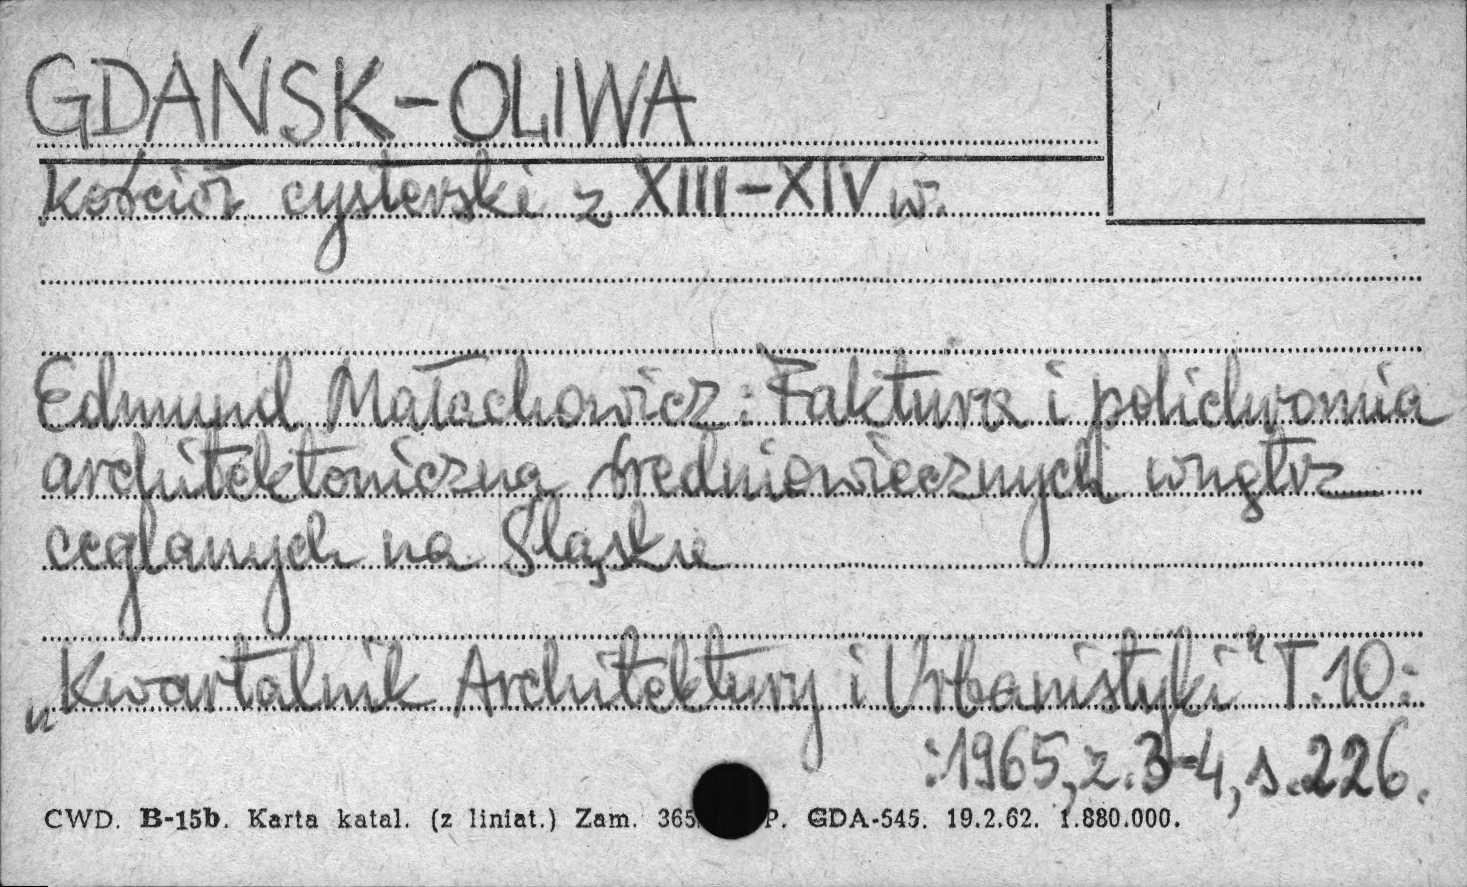 GDAŃSK-OLIWA
Kościół cysterski z XIII-XIV w.
Edmund Małachowicz: Faktura i polichromia
architektoniczna średniowiecznych wnętrz
ceglanych na Śląsku
„Kwartalnik Architektury i Urbanistyki" T.10:
:1965, z.3-4, s.226.
CWD. B-15b. Karta katal. (z liniat.) Zam. 365 P. GDA-545. 19.2.62. 1.880.000.